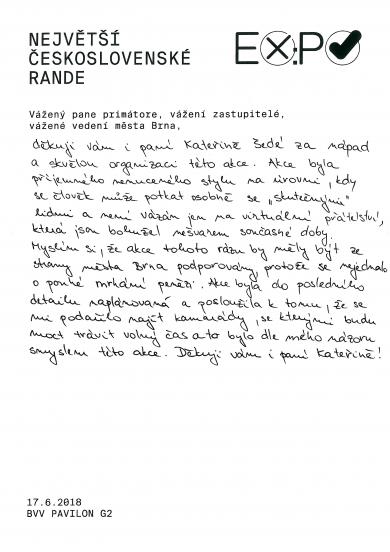 NEJVĚTŠÍ
ČESKOSLOVENSKÉ
RANDE
EXPO
Vážený pane primátore, vážení zastupitelé,
vážené vedení města Brna,
děkuji vám i paní Kateřině Šedé za nápad
a skvělou organizaci této akce. Akce byla
příjemného nenuceného stylu na úrovni, kdy
se člověk může potkat osobně se „skutečnými"
lidmi a není vázán jen na virtuální přátelství,
která jsou bohužel nešvarem současné doby.
Myslím si, že akce tohoto rázu by měly být ze
strany města Brna podporovány, protože se nejednalo
o pouhé mrhání penězi. Akce byla do posledního
detailu naplánovaná a posloužila k tomu, že se
mi podařilo najít kamarády, se kterými budu
moct trávit volný čas a to bylo dle mého názoru
smyslem této akce. Děkuji vám i paní Kateřině!
17.6.2018
BVV PAVILON G2